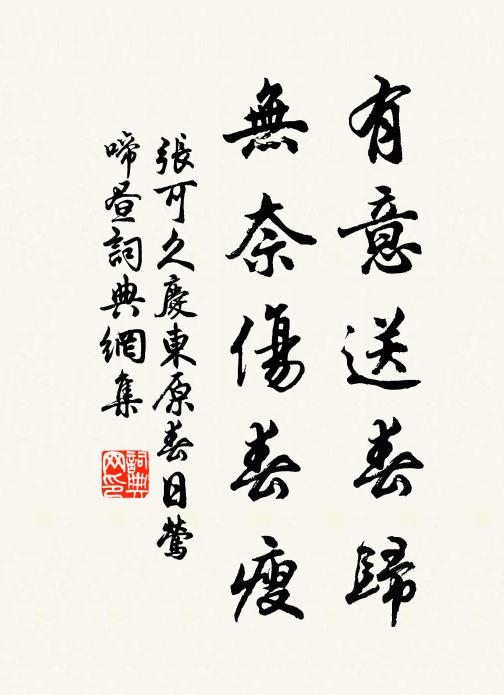 有意送春歸
無奈傷春瘦
張可久慶東原春日鶯
啼晝詞典網集
詞典网印